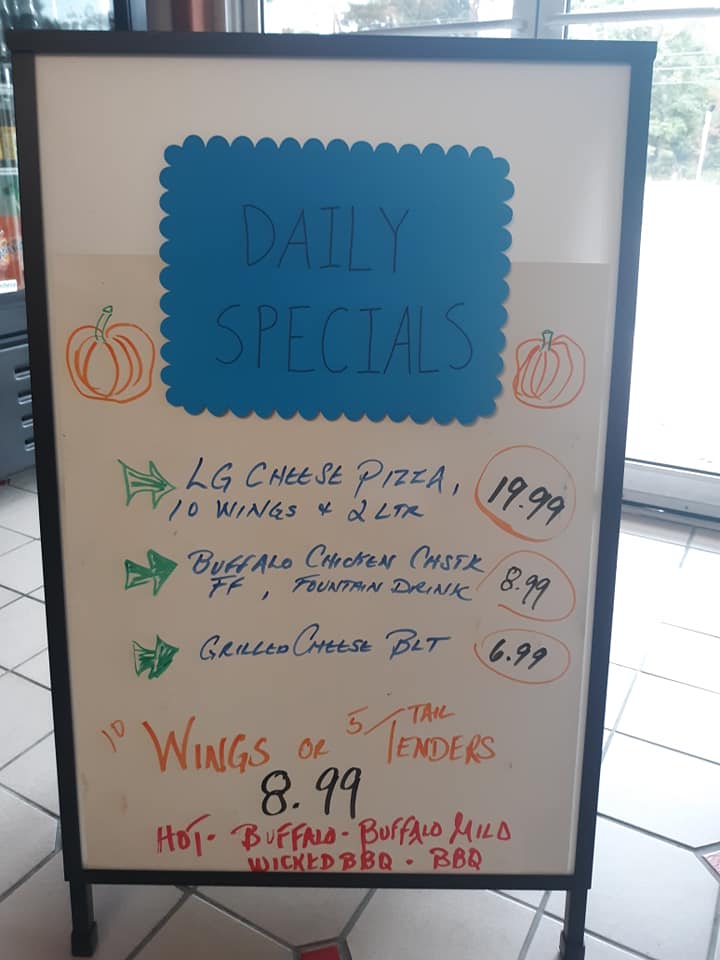 DAILY
SPECIALS
LG CHEESE PIZZA,
10 WINGS & 2 LTR
19.99
BUFFALO CHICKEN CHSTK
FF, FOUNTAIN DRINK
8.99
GRILLED CHEESE BLT
6.99
10 WINGS OR 5 TAIL TENDERS
8.99
HOT - BUFFALO - BUFFALO MILD
WICKED BBQ - BBQ